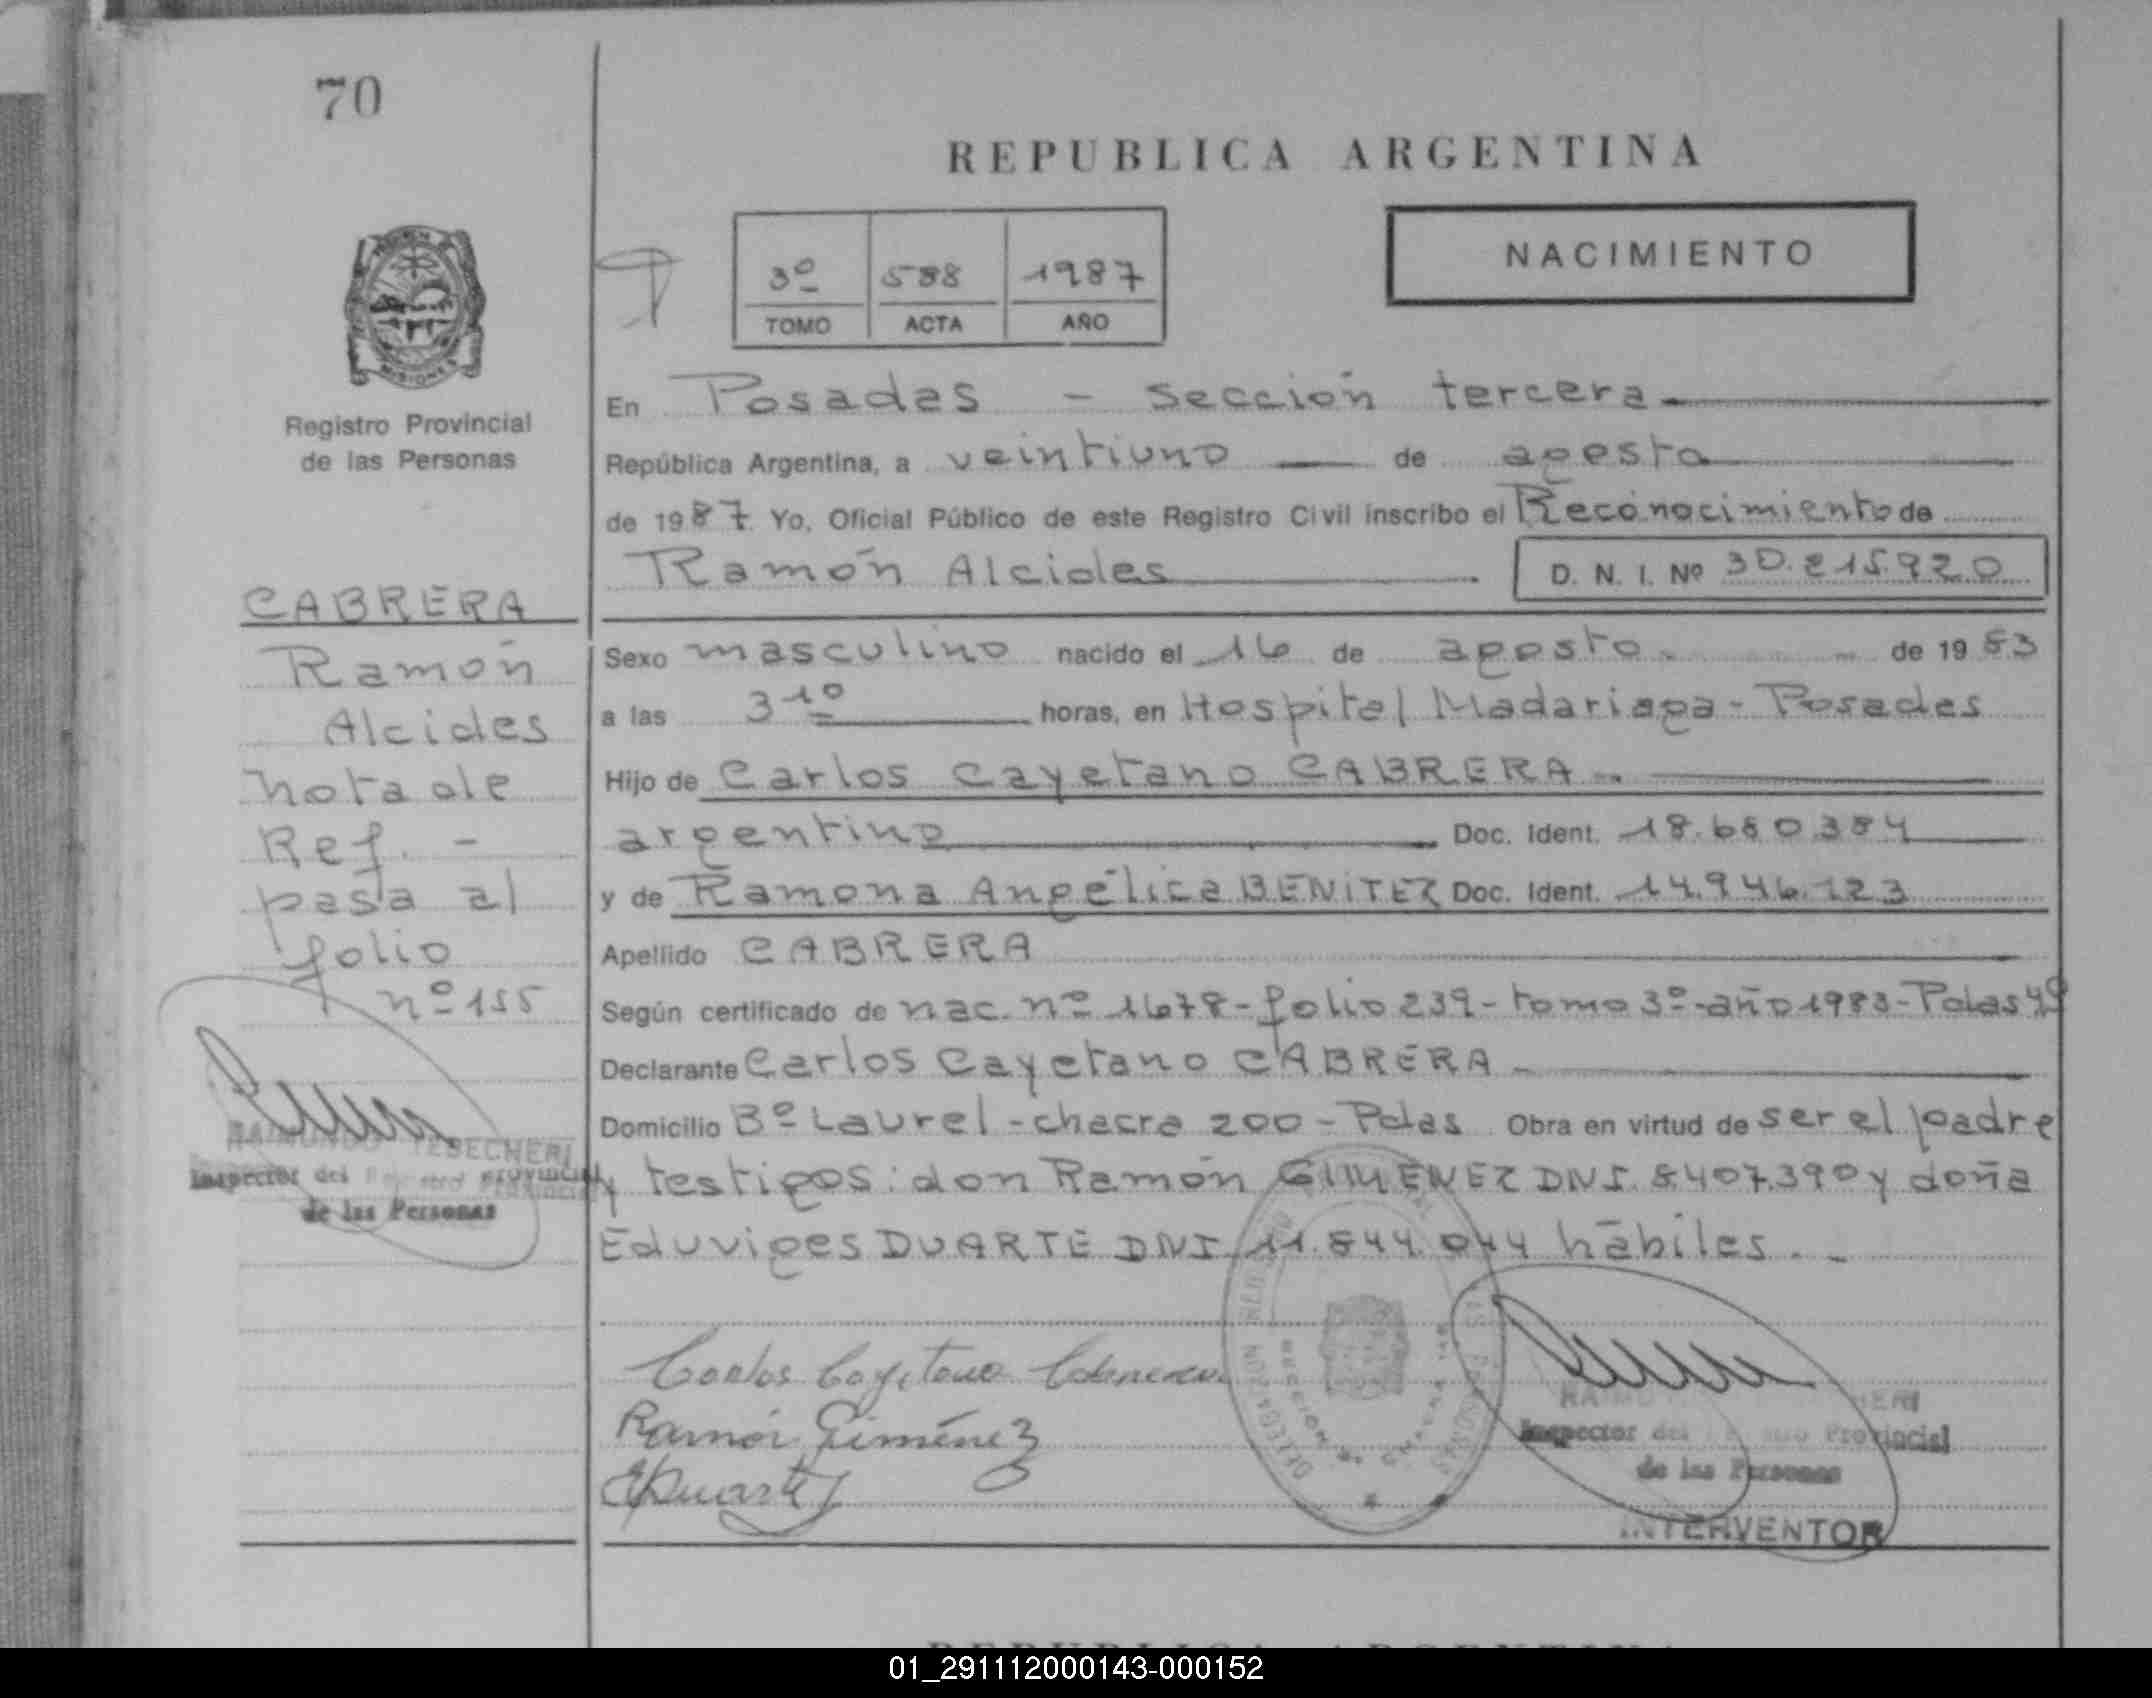 70
REPUBLICA ARGENTINA
NACIMIENTO
3º 588 1987
TOMO ACTA AÑO
MISIONES
Registro Provincial
de las Personas
En Posadas - Sección tercera
República Argentina, a veintiuno de agosto
de 1987. Yo, Oficial Público de este Registro Civil inscribo el Reconocimiento de
Ramón Alcides D. N. I. Nº 30.215.920
CABRERA
Ramón
Alcides
nota de
Ref. -
pasa al
folio
nº 155
Sexo masculino nacido el 16 de agosto de 1983
a las 3 10 horas, en Hospital Madariaga - Posadas
Hijo de Carlos Cayetano CABRERA
argentino Doc. Ident. 18.680.384
y de Ramona Angélica BENITEZ Doc. Ident. 14.946.123
Apellido CABRERA
Según certificado de nac. nº 1678 - folio 239 - tomo 3º - año 1983 - Pdas
Declarante Carlos Cayetano CABRERA
Domicilio Bº Laurel - chacra 200 - Pdas Obra en virtud de ser el padre
y testigos: don Ramón GIMENEZ DNI. 8.407.390 y doña
Eduviges DUARTE DNI 11.844.044 hábiles.
RAIMUNDO TESECHERI
Inspector del Registro Provincial
de las Personas
Carlos Cayetano Cabrera
Ramón Giménez
EDuarte
DELEGACION
PERSONAS
Inspector del Provincial
de las Personas
INTERVENTOR
REPUBLICA ARGENTINA
01_291112000143-000152